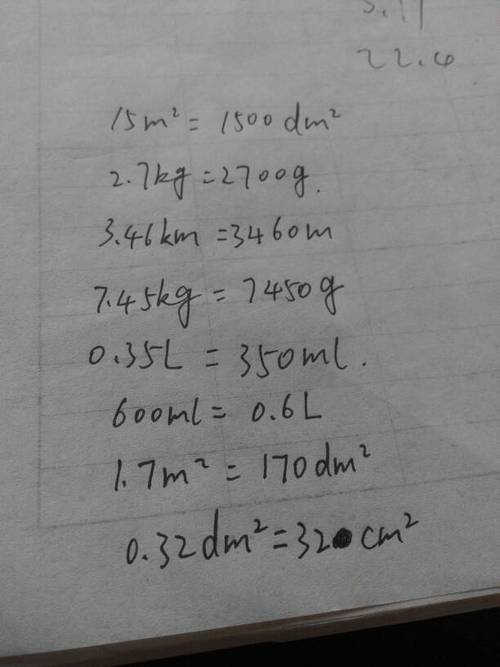 22.4
15m² = 1500 dm²
2.7kg = 2700g.
3.46km = 3460m
7.45kg = 7450g
0.35L = 350ml.
600ml = 0.6L
1.7m² = 170dm²
0.32dm² = 32 cm²